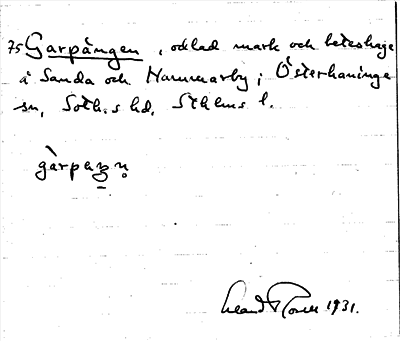 75 Garpängen, odlad mark och beteshage
å Sanda och Hammarby; Österhaninge
sn, Soth:s hd, Sthlms l.
gàrpeŋn̥
1931.